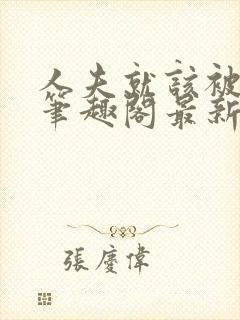 人夫就該被
筆趣閣最新
張慶偉